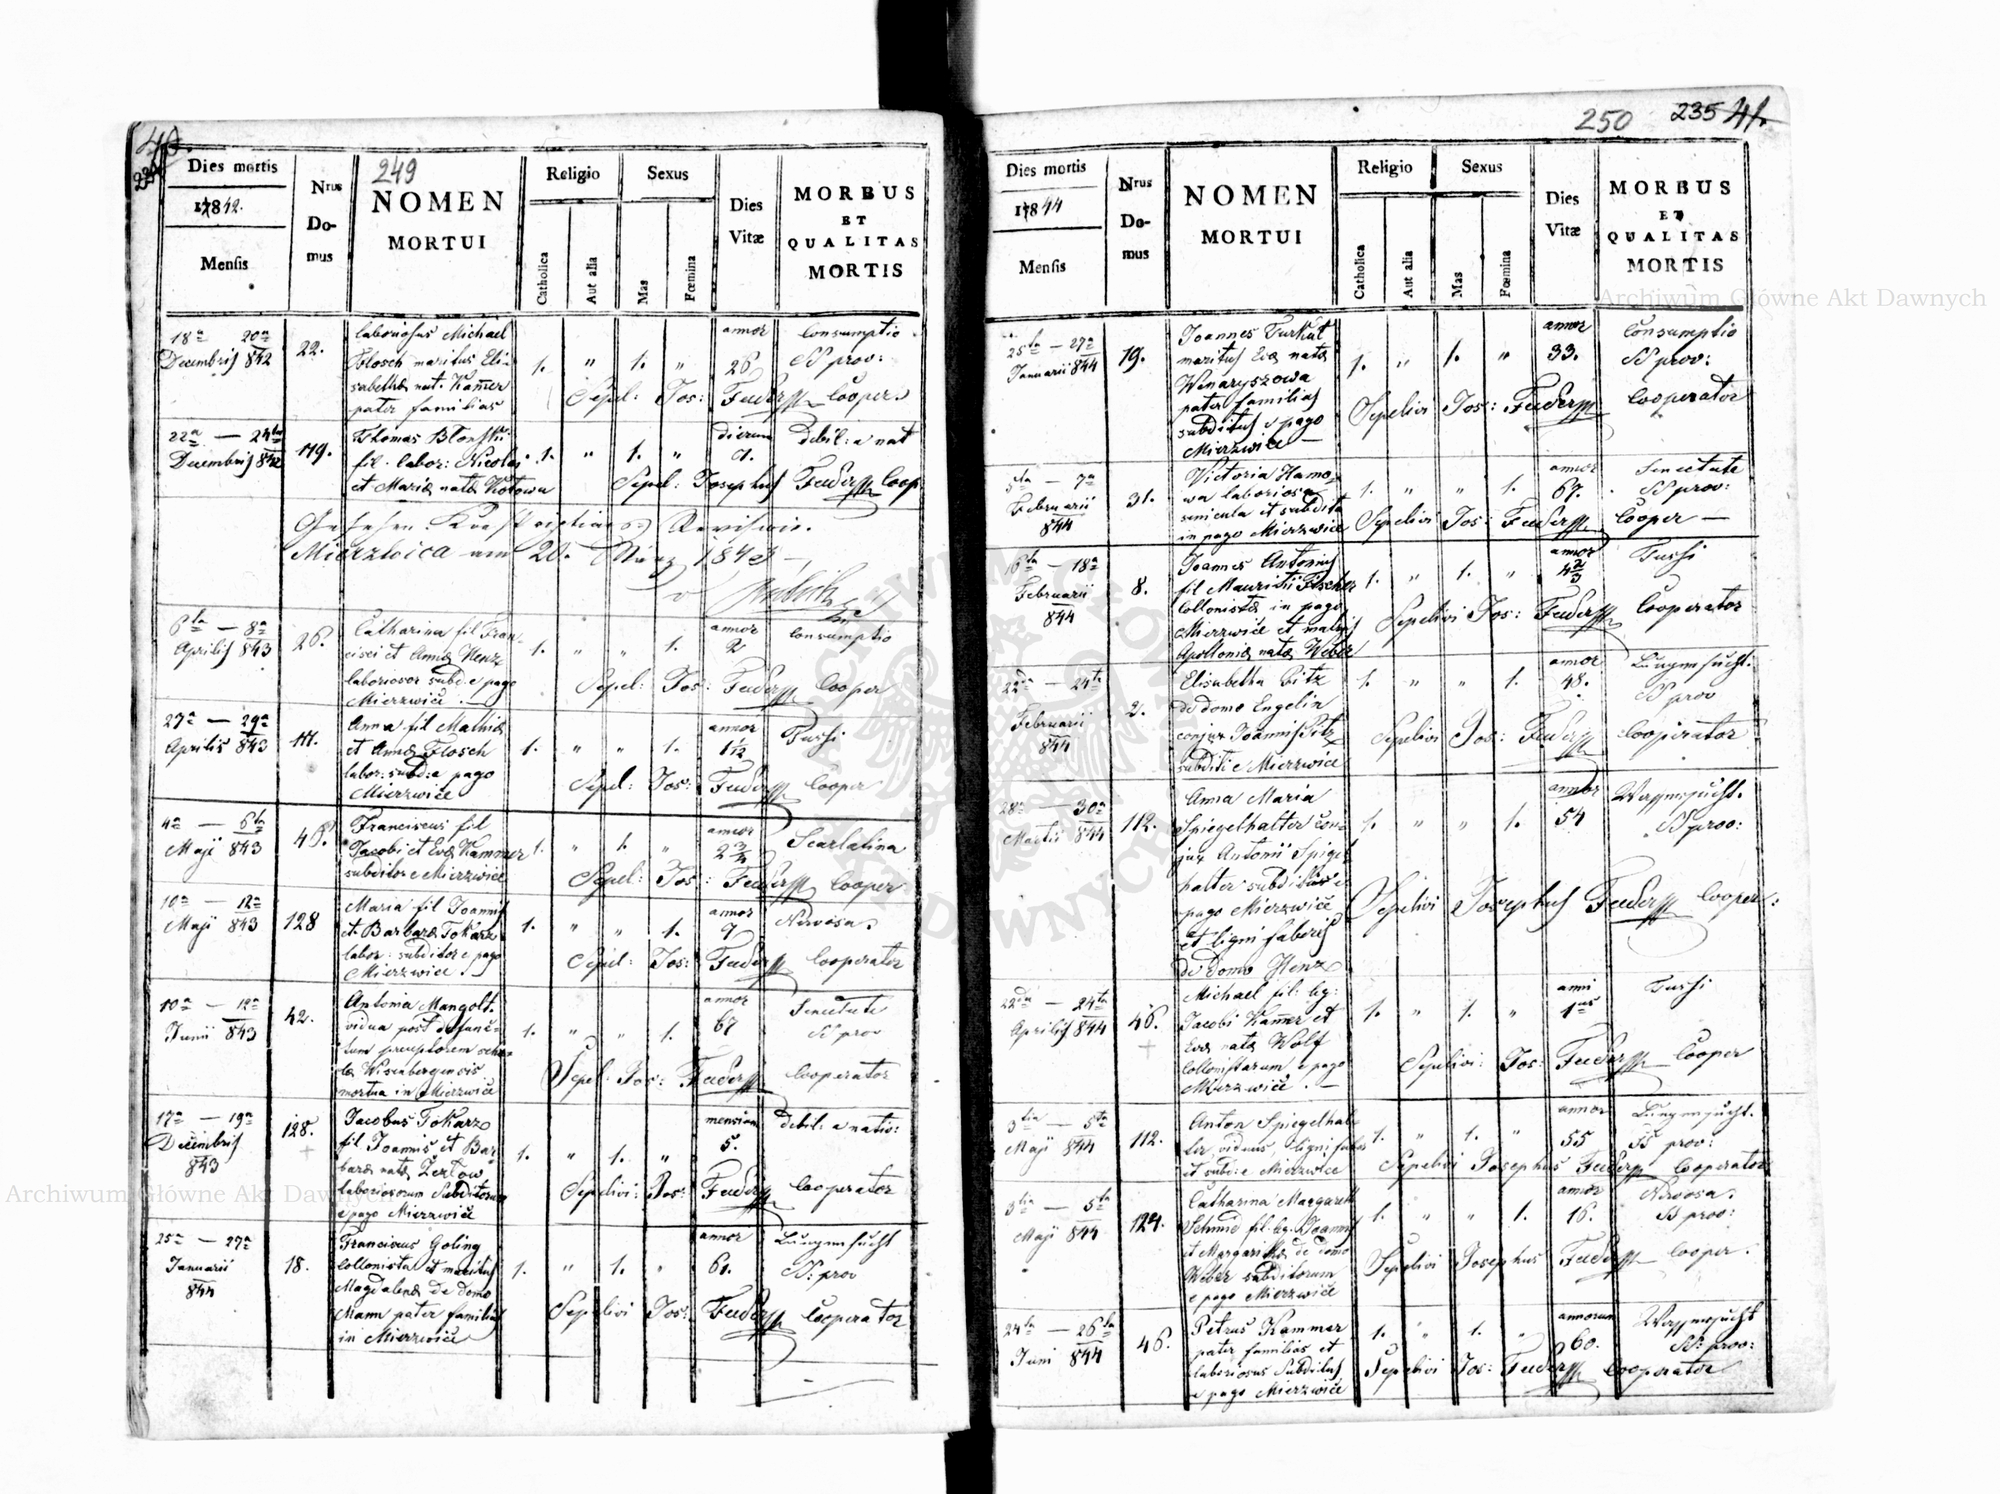 40.
249
Dies mortis
1842.
Mensis
Nrus
Do-
mus
NOMEN
MORTUI
Religio
Catholica
Aut alia
Sexus
Mas
Fœmina
Dies
Vitæ
MORBUS
ET
QUALITAS
MORTIS
18a 20a
Decembris 842
22.
laboriosus Michael
Flosch maritus Eli-
sabethæ nat. Kam̄er
pater familias
1. " 1. "
annor
26
Consumptio
SS prov:
Sepel: Jos: Cooper.
22a — 24ta
Decembris 842
119.
Thomas
fil. labor: Nicolai
et Mariæ natæ Kotowa
1. " 1. "
dierum
9.
debil: a nat
Sepel: Josephus Coop
Mierzwica am 20. März 1843
6ta — 8a
Aprilis 843
26.
Catharina fil Fran-
cisci et Annæ Henz
laboriosor subd. e pago
Mierzwice.
1. " " 1.
annor
2
Consumptio
Sepel: Jos: Cooper
27a — 29a
Aprilis 843
111.
Anna fil Mathiæ
et Annæ Flosch
labor: subd: e pago
Mierzwice
1. " " 1.
annor
1½
Tussi
Sepel: Jos: Cooper
4a — 6ta
Maji 843
46.
Franciscus fil
Jacobi et Evæ Kammer
subditor e Mierzwice
1. " 1. "
annor
2 3/4
Scarlatina
Sepel: Jos: Cooper
10a — 12a
Maji 843
128
Maria fil Joannis
et Barbaræ Tokarz
labor: subditor e pago
Mierzwice.
1. " " 1.
annor
9
Nervosa.
Sepel: Jos: Cooperator
10a — 12a
Junii 843
42.
Antonia Mangolt.
vidua post defunc-
tum preceptorem scho-
læ Wisenbergensis
mortua in Mierzwice
1. " " 1.
annor
67
Senectute
SS prov
Sepel. Jos: Cooperator
17a — 19a
Decembris
843
128.
Jacobus Tokarz
fil Joannis et Bar-
baræ natæ
laboriosorum Subditorum
e pago Mierzwice
1. " 1. "
mensium
5.
debil: a nativ:
Sepelivi: Jos: Cooperator
25a — 27a
Januarii
844
18.
Franciscus Goling
Collonista et maritus
Magdalenæ de domo
Mann pater familias
in Mierzwice
1. " 1. "
annor
61.
Lungensucht
SS: prov
Sepelivi Jos: Cooperator
250 235 41.
Dies mortis
1844
Mensis
Nrus
Do-
mus
NOMEN
MORTUI
Religio
Catholica
Aut alia
Sexus
Mas
Fœmina
Dies
Vitæ
MORBUS
ET
QUALITAS
MORTIS
25ta — 27a
Januarii 844
19.
Joannes Turkut
maritus Evæ natæ
Winaryszowa
pater familias
subditus e pago
Mierzwice —
1. " 1. "
annor
33.
Consumptio
SS prov:
Sepelivi Jos: Cooperator
5ta — 7a
Februarii
844
31.
Victoria Hamo-
wa laboriosa
inicula et subdita
in pago Mierzwice
1. " " 1.
annor
67.
Senectute
SS prov:
Sepelivi Jos: Cooper —
16ta — 18a
Februarii
844
8.
Joannes Antonius
fil Mauritii Fischer
Collonistæ in pago
Mierzwice et matris
Apolloniæ natæ Weber
1. " 1. "
annor
4 2/3
Tussi
Sepelivi Jos: Cooperator
22da — 24ta
Februarii
844
2.
Elisabetha Pitz
de domo Engelin
conjux Joannis Pitz
subditi e Mierzwice
1. " " 1.
annor
48.
Lungensucht.
SS prov
Sepelivi Jos: Cooperator
28a — 30a
Martis 844
112.
Anna Maria
Spiegelhalter con-
jux Antonii Spigel
halter subditus e
pago Mierzwice
et ligni fabris
de domo Henz
1. " " 1.
annor
54
Wassersucht.
SS prov:
Sepelivi Josephus Cooper:
22da — 24ta
Aprilis 844
46.
Michael fil: leg:
Jacobi Kam̄er et
Evæ natæ Wolf
Collonistarum e pago
Mierzwice. —
1. " 1. "
anni
1us
Tussi
Sepelivi: Jos: Cooper
3tia — 5ta
Maji 844
112.
Anton Spiegelhal-
ter, viduus, ligni faber
et subd: e Mierzwice
1. " 1. "
annor
55
Lungensucht.
SS prov:
Sepelivi Josephus Cooperator
3tia — 5ta
Maji 844
124.
Catharina Margareth
Schmid fil. leg. Joannis
et Margarithæ de domo
Weber subditorum
e pago Mierzwice
1. " " 1.
annor
16.
Nervosa:
SS prov:
Sepelivi Josephus Cooper.
24ta — 26ta
Juni 844
46.
Petrus Kammer
pater familias et
laboriosus Subditus
e pago Mierzwice
1. " 1. "
annorum
60.
Wassersucht
SS: prov:
Sepelivi Jos: Cooperator
Archiwum Główne Akt Dawnych
Archiwum Główne Akt Dawnych